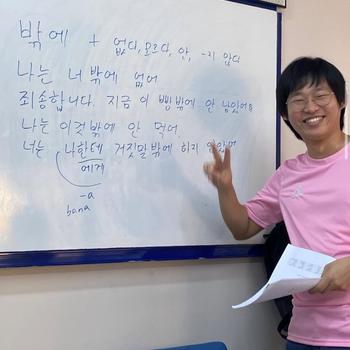 밖에 + 없다, 모르다, 안, -지 않다
나는 너 밖에 없어
죄송합니다. 지금 이 빵밖에 안 남았어요
나는 이것밖에 안 먹어.
너는 나한테 거짓말밖에 하지 않았어
에게
-a
bana